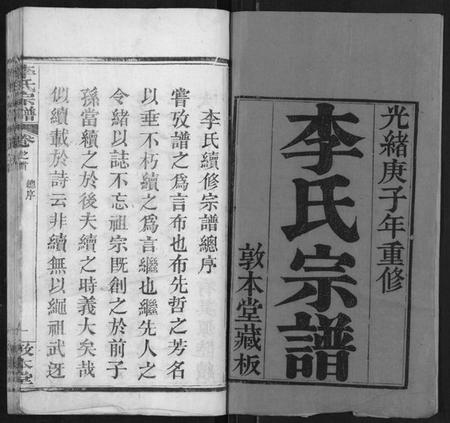 光緒庚子年重修
李氏宗譜
敦本堂藏板
李氏續修宗譜總序
嘗攷譜之爲言布也布先哲之芳名
以垂不朽續之爲言繼也繼先人之
令緒以誌不忘祖宗既創之於前子
孫當續之於後夫續之時義大矣哉
似續載於詩云非續無以繩祖武迓
李氏宗譜 卷之首 總序 一 敦本堂